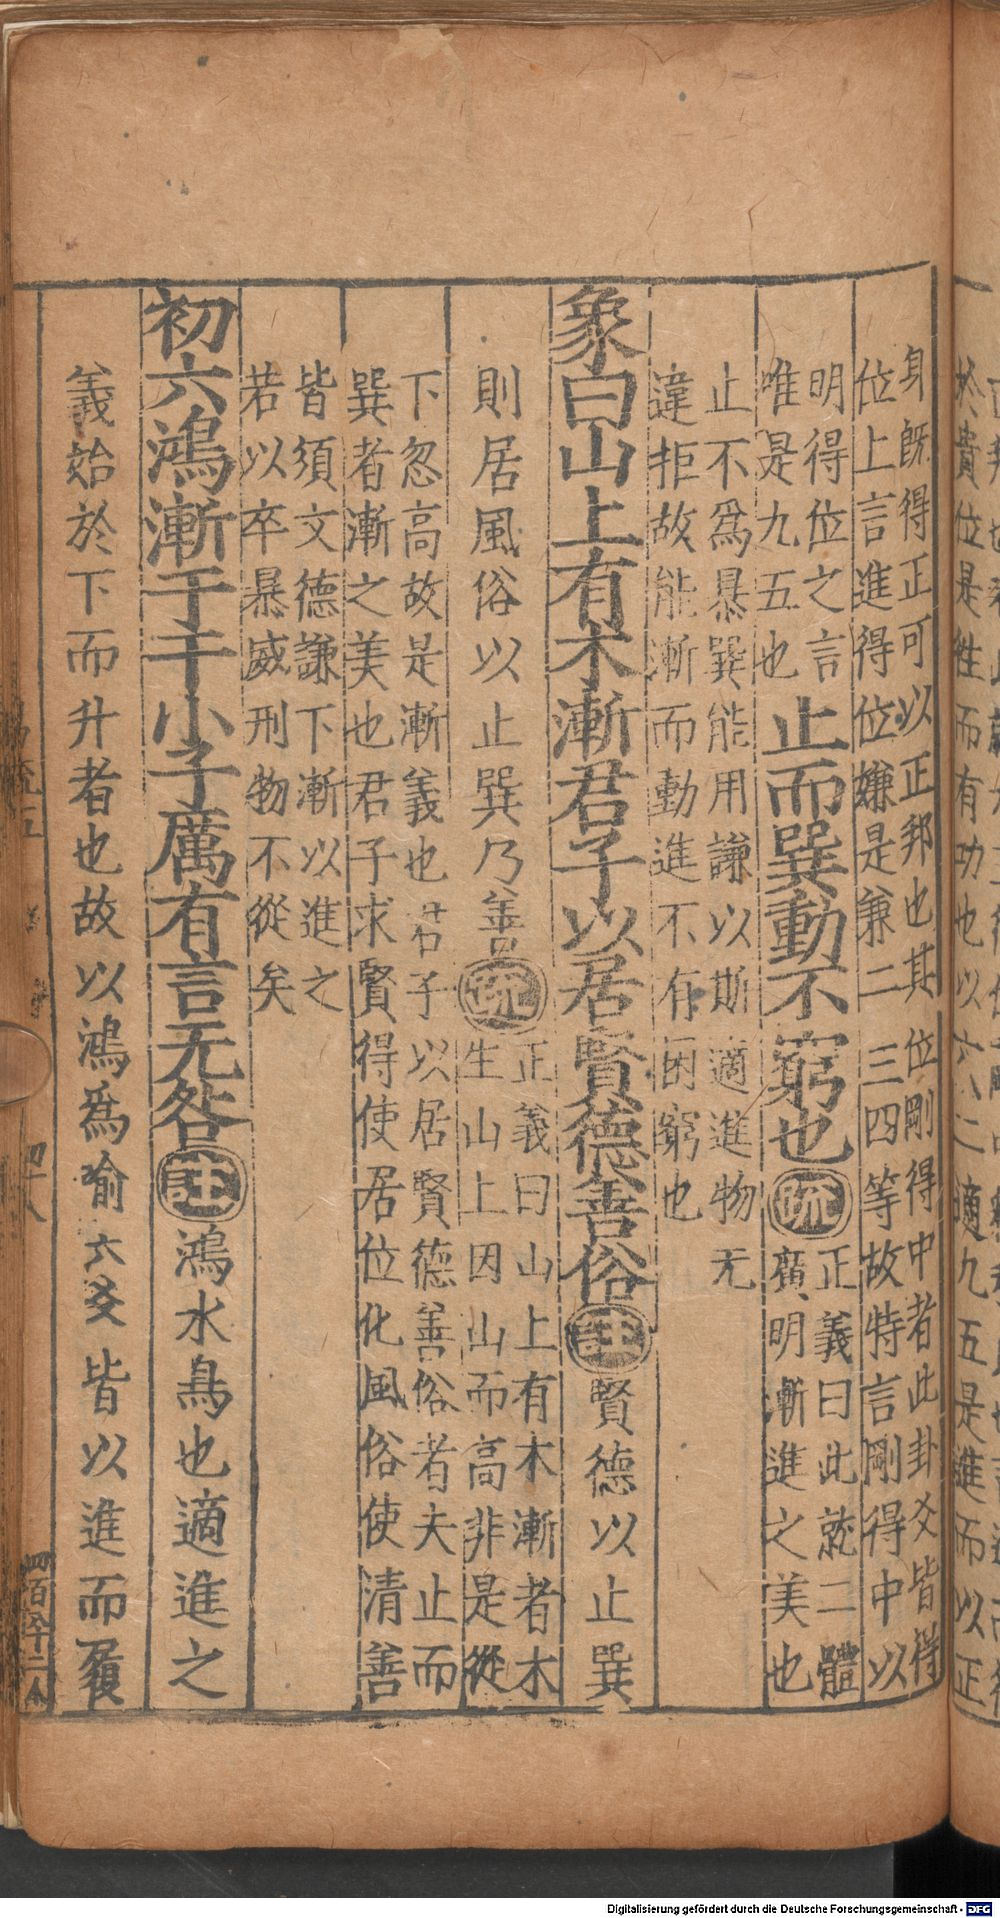 身旣得正可以正邦也其位剛得中者此卦爻皆得
位上言進得位嫌是兼二三四等故特言剛得中以
明得位之言
唯是九五也
止而巽動不窮也
疏
正義曰此就二體
廣明漸進之美也
止不爲暴巽能用謙以斯適進物无
違拒故能漸而動進不有困窮也
象曰山上有木漸君子以居賢德善俗
註
賢德以止巽
則居風俗以止巽乃善
疏
正義曰山上有木漸者木
生山上因山而高非是從
下忽高故是漸義也君子以居賢德善俗者夫止而
巽者漸之美也君子求賢得使居位化風俗使清善
皆須文德謙下漸以進之
若以卒暴威刑物不從矣
初六鴻漸于干小子厲有言无咎
註
鴻水鳥也適進之
義始於下而升者也故以鴻爲喻六爻皆以進而履
Digitalisierung gefördert durch die Deutsche Forschungsgemeinschaft - DFG